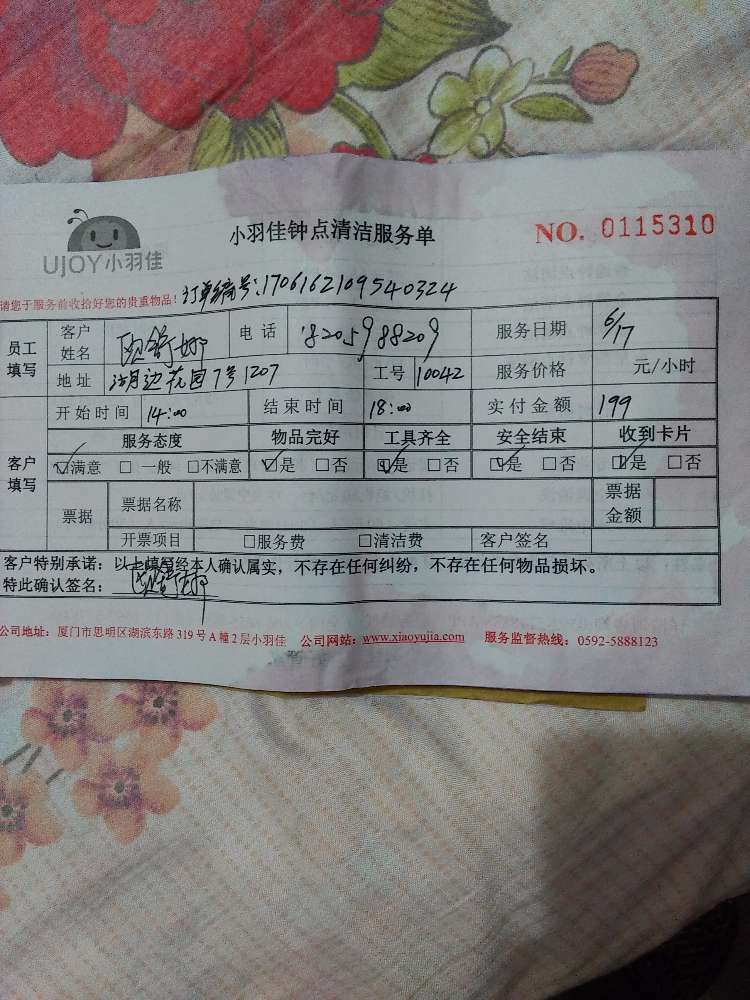 UJOY小羽佳
小羽佳钟点清洁服务单
NO. 0115310
请您于服务前收拾好您的贵重物品!
订单编号:1706162109540324
员工填写
客户姓名 欧 娜 电话 18205988209 服务日期 6/17
地址 湖边花园7号1207 工号 10042 服务价格 元/小时
客户填写
开始时间 14:00 结束时间 18:00 实付金额 199
服务态度 物品完好 工具齐全 安全结束 收到卡片
☑满意 □一般 □不满意 ☑是 □否 ☑是 □否 ☑是 □否 ☑是 □否
票据 票据名称 票据金额
开票项目 □服务费 □清洁费 客户签名
客户特别承诺：以上填写经本人确认属实，不存在任何纠纷，不存在任何物品损坏。
特此确认签名： 欧 娜
公司地址：厦门市思明区湖滨东路319号A幢2层小羽佳 公司网站：www.xiaoyujia.com 服务监督热线：0592-5888123